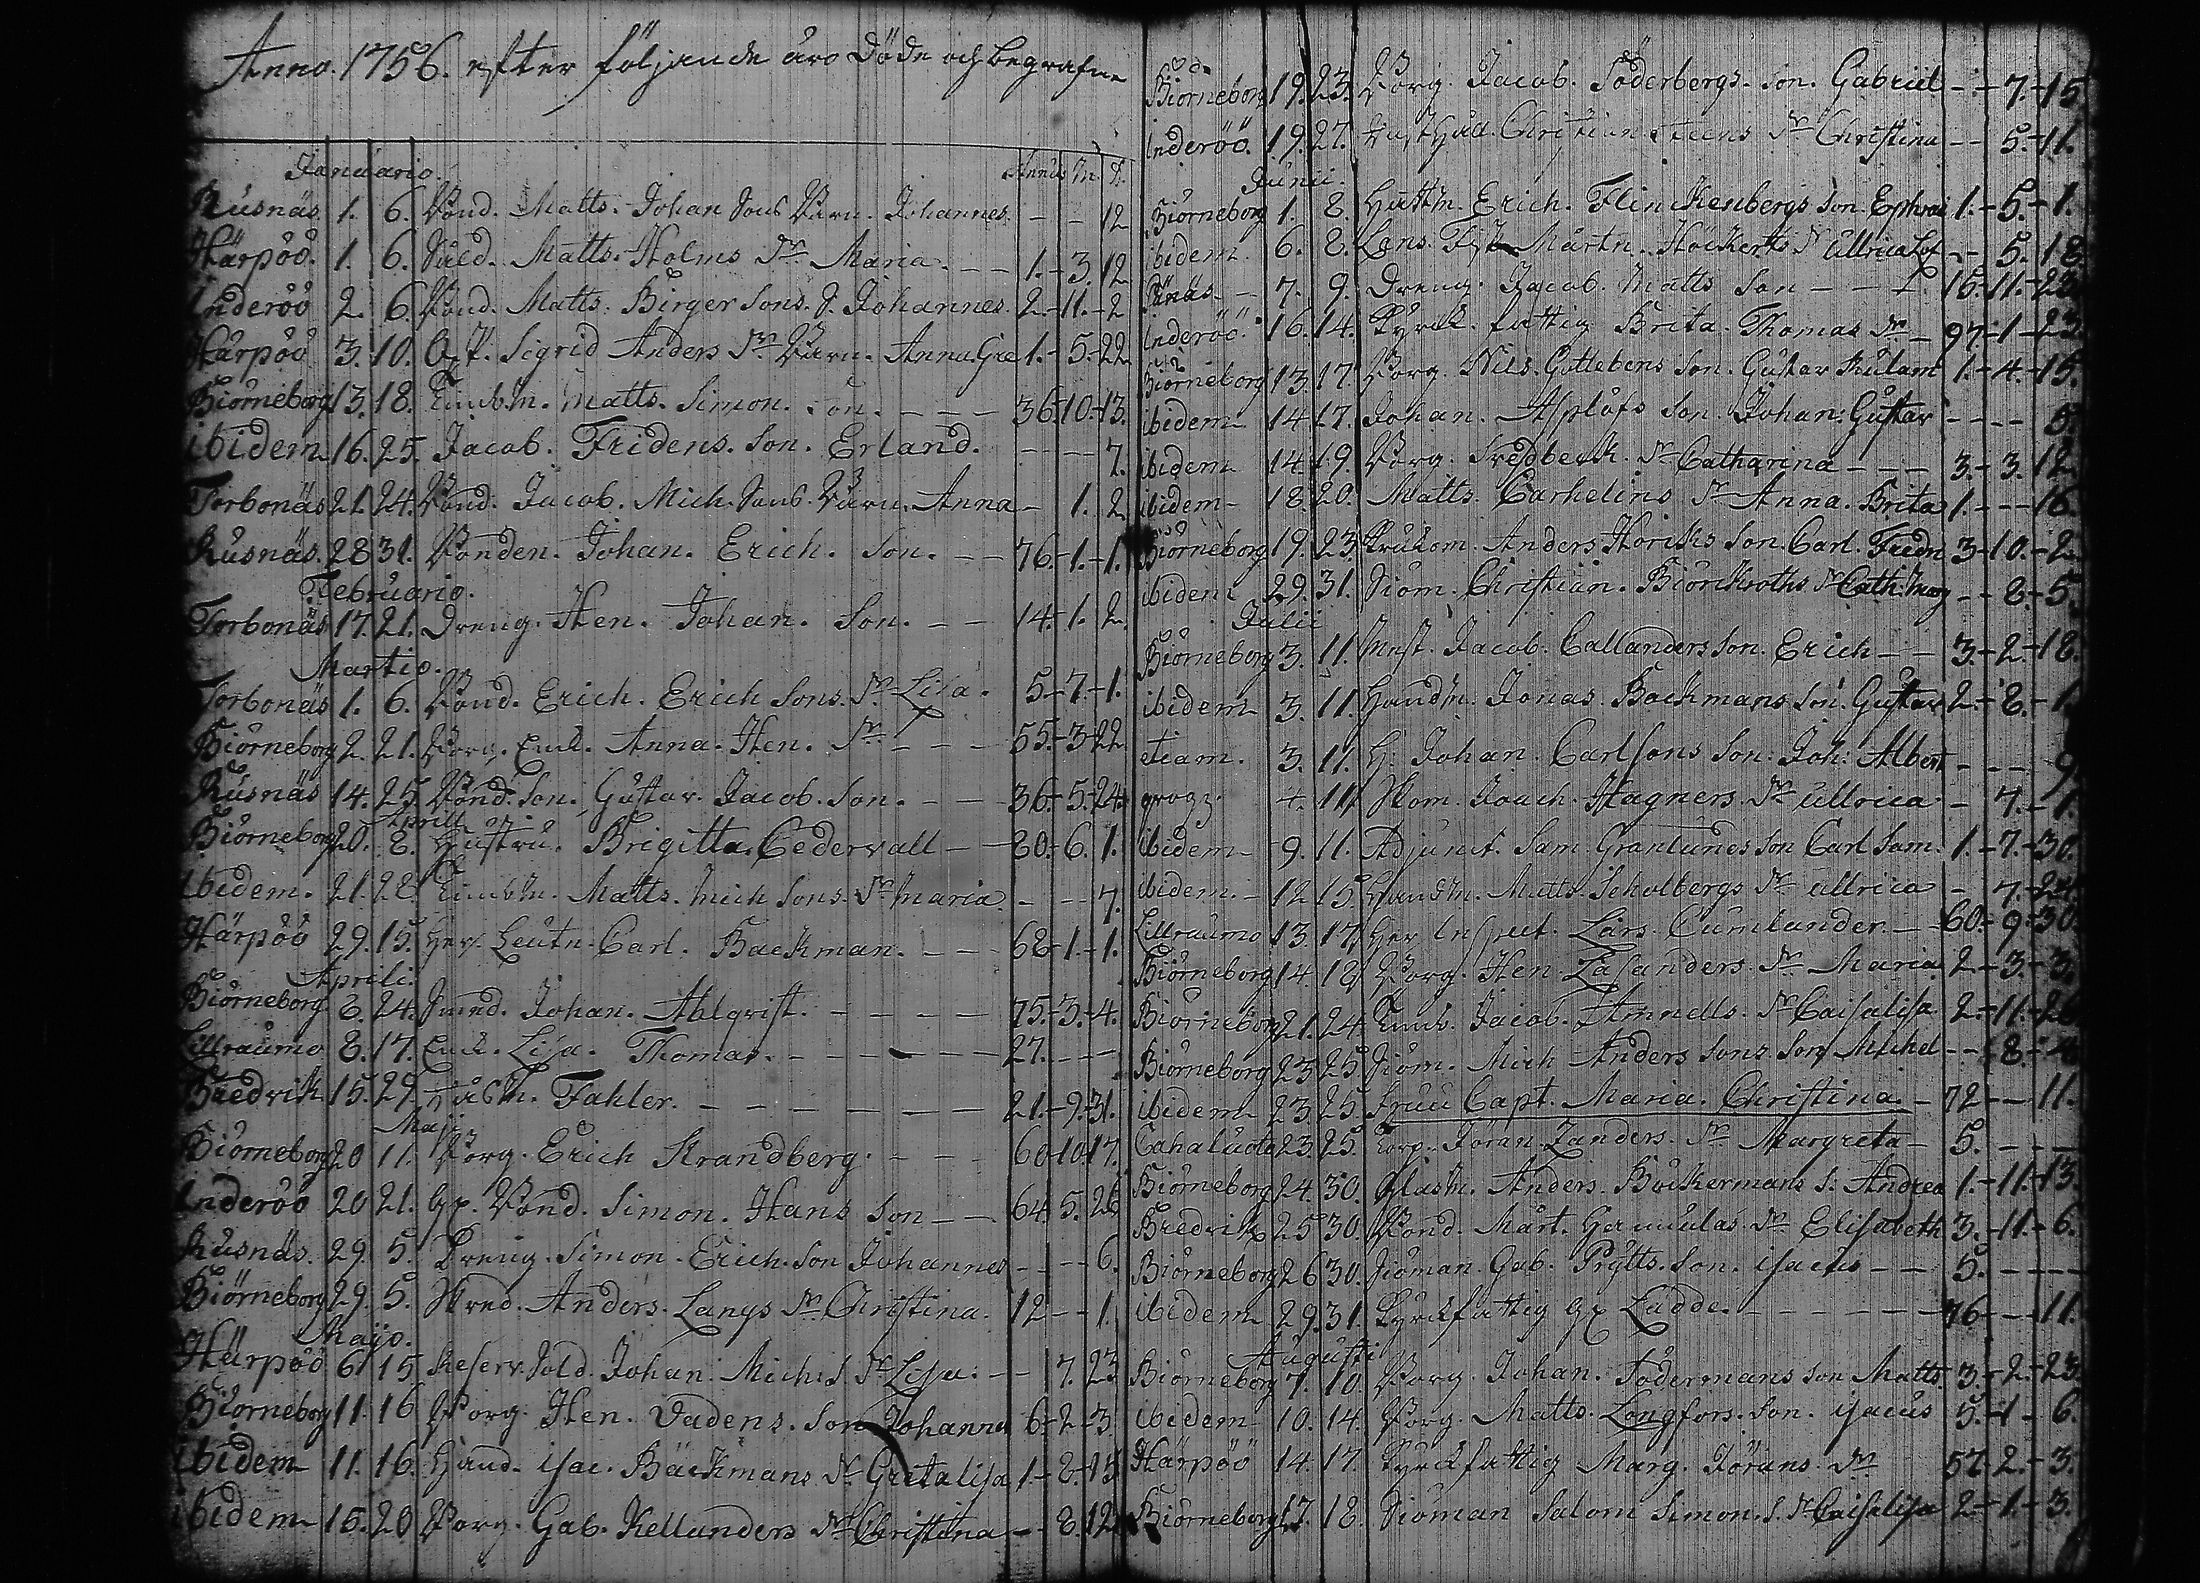 Anno. 1756. efter följande äro Döde och begrafne
Januario. Annus M. D.
Rusnäs 1. 6. Bond. Matts. Johan Sons Barn. Johannes. - - 12
Härpöö. 1. 6. Matts. Holms Dr. Maria. - - 1. - 3. 12
Inderöö 2. 6. Bond. Matts. Birger Sons. S. Johannes. 2 - 11. - 2
Härpöö 3. 10. Sigrid Anders Dr. Barn. Anna Gre 1. - 5. - 22
Biörneborg 13. 18. Matts. Simon. Son. - - - 36. 10. - 13.
ibidem 16. 25. Jacob. Fridens. Son. Erland. - - - - 7.
Torbonäs 21. 24. Bond. Jacob. Mich. Sons. Barn. Anna - 1. 2.
Rusnäs. 28 31. Bonden. Johan. Erich. Son. - - 76. - 1. - 1.
Februario.
Torbonäs 17. 21. Dreng. Hen. Johan. Son. - - 14. 1. 2.
Martio.
Torbonäs 1. 6. Bond. Erich. Erich Sons. Dr. Lisa. 5. - 7. - 1.
Biörneborg 2. 21. Borg. Enk. Anna. Hen. Dr. - - - 55. - 3 - 22
Rusnäs 14. 25. Bond. Son. Gustav. Jacob. Son. - - 36. - 5. - 24
Aprill
Biörneborg 20. 8. Hustru. Brigitta. Cedervall - - 80. - 6. 1.
Ibidem. 21. 28. Matts. Mich Sons. Dr. Maria. - - - 7.
Härpöö 29. 15. Her. Leutn. Carl. Backman. - - - 68 - 1 - 1.
Aprili.
Biörneborg 8. 24. Smed. Johan. Ahlqvist. - - - - - 75. - 3. - 4.
Lillraumo 8. 17. Enk. Lisa. Thomas. - - - - - - 27. - - -
Bredvik 15. 29. Fahler. - - - - - - - 21. - 9. - 31.
Maji
Biörneborg 20 11. Borg. Erich Strandberg. - - - 60 - 10. 17.
Inderöö 20 21. Bond. Simon. Hans Son - - 64. 5. 26
Rusnäs. 29. 5. Dreng. Simon. Erich. Son Johannes - - - 6.
Biörneborg 29. 5. Skred. Anders. Langs Dr. Christina. 12 - - 1.
Majo.
Härpöö 6. 15 Reserv. Sold. Johan. Michels Dr. Lisa. - - 7. 23
Biörneborg 11. 16 Borg. Hen. Vadens. Son Johannes 6. - 2. - 3.
ibidem 11. 16. Hand. isac. Bäckmans Dr. Greta lisa 1. - 8. - 15
ibidem 15. 20 Borg. Gab. Kellanders Dr. Christina - - 8. 12
Biörneborg 19. 23. Borg. Jacob. Söderbergs. Son. Gabriel - - 7. - 15
Inderöö. 19. 27. Christian Steens Dr. Christina - - 5. - 11.
Junii.
Biörneborg 1. 8. Hattm. Erich. Flinckenbergs Son. Ephrai 1. - 5. - 1.
ibidem. 6. 8. Lens. Mårtn. Höckerts Dr. Ullrica Lof - - 5. 18
7. 9. Dreng. Jacob. Matts Son - - - 15. - 11. - 28
Inderöö. 16. 14. Kyrck. fattig Brita. Thomas Dr. - 97. - 1 - 23
Biörneborg 13. 17. Borg. Nils. Gottlebens Son. Gustav 1. - 4. - 15.
ibidem 14 17. Johan. Asplöfs Son. Johan: Gustav - - - - 5.
ibidem 14. 19. Borg. Svedbeck. Dr. Catharina - - - 3. - 3. 12
ibidem 18. 20. Matts. Carhelins Dr. Anna. Brita 1. - - 16.
Biörneborg 19. 23. Krukom. Anders Horiks Son. Carl. Fredr. 3 - 10. - 2
ibidem 29. 31. Siöm. Christian. Biörckroths Dr. Cath. Marg - - 8. - 5.
Julii
Biörneborg 3. 11. Jacob. Callanders Son. Erich - - 3. - 2. - 18.
ibidem 3. 11. Handm. Jonas Backmans Son. Gustav 2. - 8. - 1
etiam. 3. 11. H. Johan. Carlsons Son. Joh: Albert - - - 9
4. 11. Skom. Joach. Hagners. Dr. Ullrica - 7. - 1.
ibidem 9. 11. Adjunct. Sam. Granlunds Son Carl Sam. 1. - 7. - 30.
ibidem. - 12 15. Handm. Matts. Scholbergs Dr. Ullrica - 7. - 24.
Lillraumo 13. 17. Her Inspect. Lars. Cumlander. - - 60. - 9. - 30.
Biörneborg 14. 18. Borg. Hen. Lasanders. Dr. Maria 2 - 3. - 3.
Biörneborg 21. 24. Jacob. Amnells. Dr. Caisa lisa 2. - 11. - 26
Biörneborg 23 25 Siöm. Mich Anders Sons Son Michel - - 8. - 4
ibidem 23. 25. Fruu Capt. Maria. Christina. - 72 - - 11.
Cahaluoto 23. 25. Torp. Jöran. Zanders. Dr. Margreta - 5. - - -
Biörneborg 24. 30. Glasm. Anders. Böckermans S. Andrea 1. - 11. - 13.
Bredvik 25 30. Bond. Mårt. Dr. Elisabeth 3. - 11. - 6.
Biörneborg 26 30. Siöman. Gab. Prytts. Son. isacus - - 5. - - -
ibidem 29. 31. Kyrckfattig Ladde. - - - - - - 76 - - 11.
Augusti
Biörneborg 7. 10. Borg. Johan. Södermans Son Matts. 3. - 2. - 23
ibidem 10. 14. Borg. Matts. Longfors. Son. isacus 5. - 1 - 6.
Härpöö 14. 17. Kyrckfattig Marg. Jörans Dr. 57. 2. - 3.
Biörneborg 17. 18. Siöman Salom Simon. S. Dr. Caisa lisa 2. - 1. - 3.